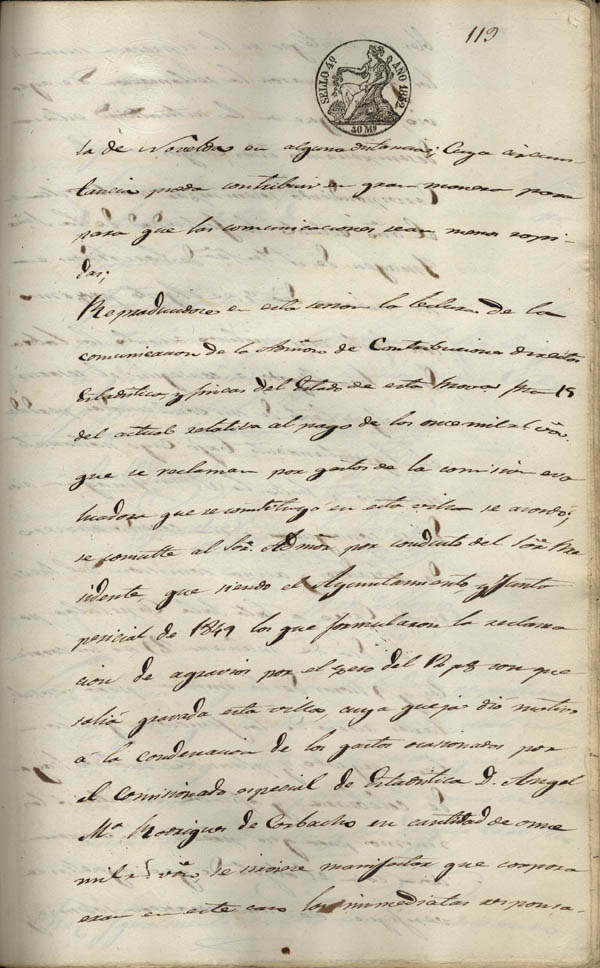 119
SELLO 4º AÑO 1852
40 Ms
la de Novelda en alguna distancia; Cuya circuns-
tancia pueda contribuir en gran manera para
para que las comunicaciones sean menos rapi-
das;
Reproducidose en esta sesion la lectura de la
comunicacion de la Admon de Contribuciones directas
Estadistica, y fincas del Estado de esta Prova 18
del actual relativa al pago de los once mil rs von
que se reclaman por gastos de la comision eva
luadora que se constituyó en esta villa se acordó;
se consulte al Sor Admor por conducto del Sor Pre
sidente, que siendo el Ayuntamiento, y Junta
pericial de 1849 los que formularon la reclama
cion de agravios por el peso del 12 p8 con que
salia gravada esta villa, cuya queja dió motivo
á la condenacion de los gastos ocasionados por
el Comisionado especial de Estadistica D. Angel
Ma Rodrigues de Corbacho en cantidad de once
mil rs von se sirviese manifestar que corpora
eran en este caso los inmediatos responsa-